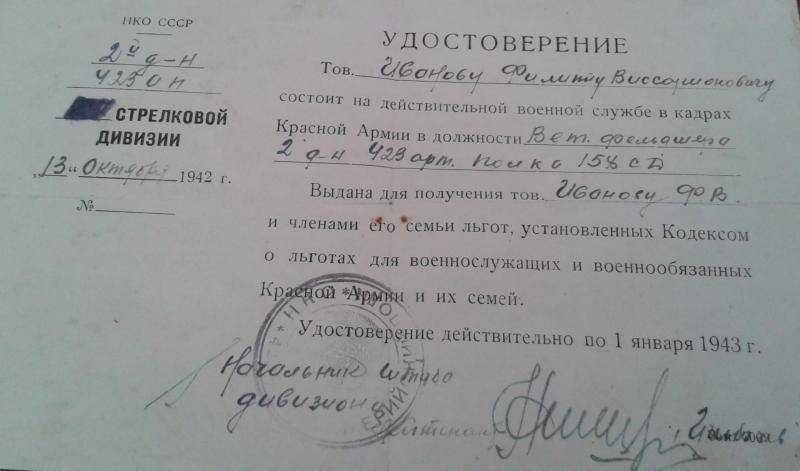 НКО СССР
2й д-н
423 ап
СТРЕЛКОВОЙ
ДИВИЗИИ
„13“ Октября 1942 г.
№
УДОСТОВЕРЕНИЕ
Тов. Иванову Филиппу Виссарионовичу
состоит на действительной военной службе в кадрах
Красной Армии в должности Вет. фельдшера
2 д-н 423 арт. полка 158 сд
Выдана для получения тов. Иванову Ф.В.
и членами его семьи льгот, установленных Кодексом
о льготах для военнослужащих и военнообязанных
Красной Армии и их семей.
Удостоверение действительно по 1 января 1943 г.
Начальник штаба
дивизиона
НКО